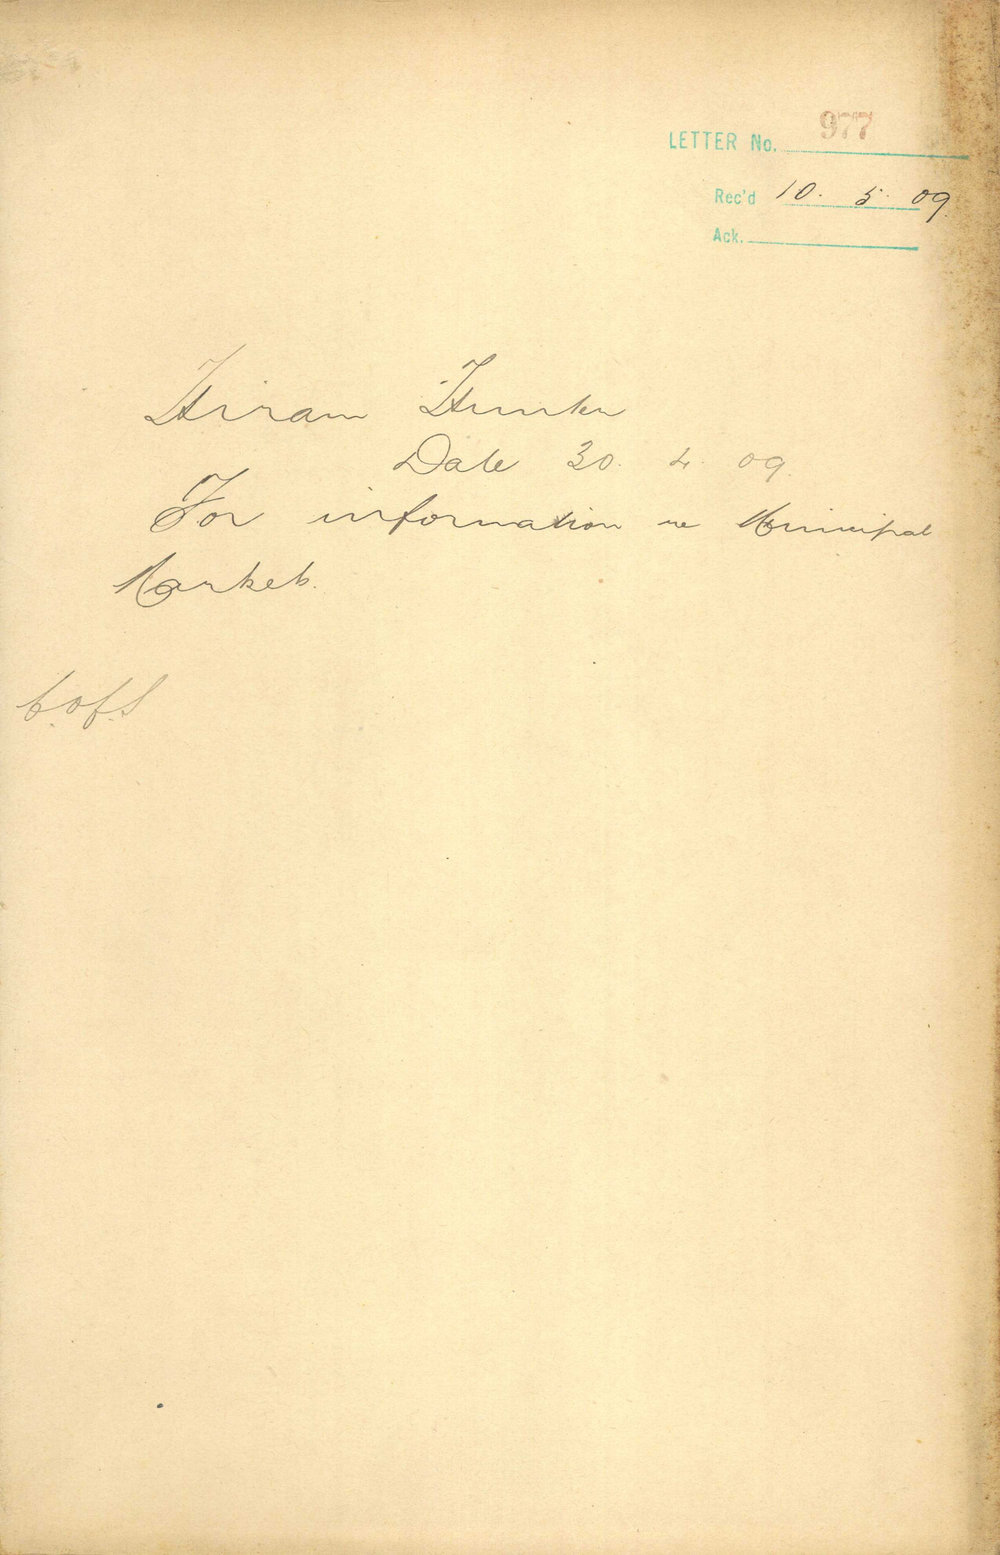 LETTER No. 977
Rec'd 10. 5. 09.
Ack.
Hiram Hunter
Date 30. 4. 09.
For information re Municipal
Markets.
C.of.S